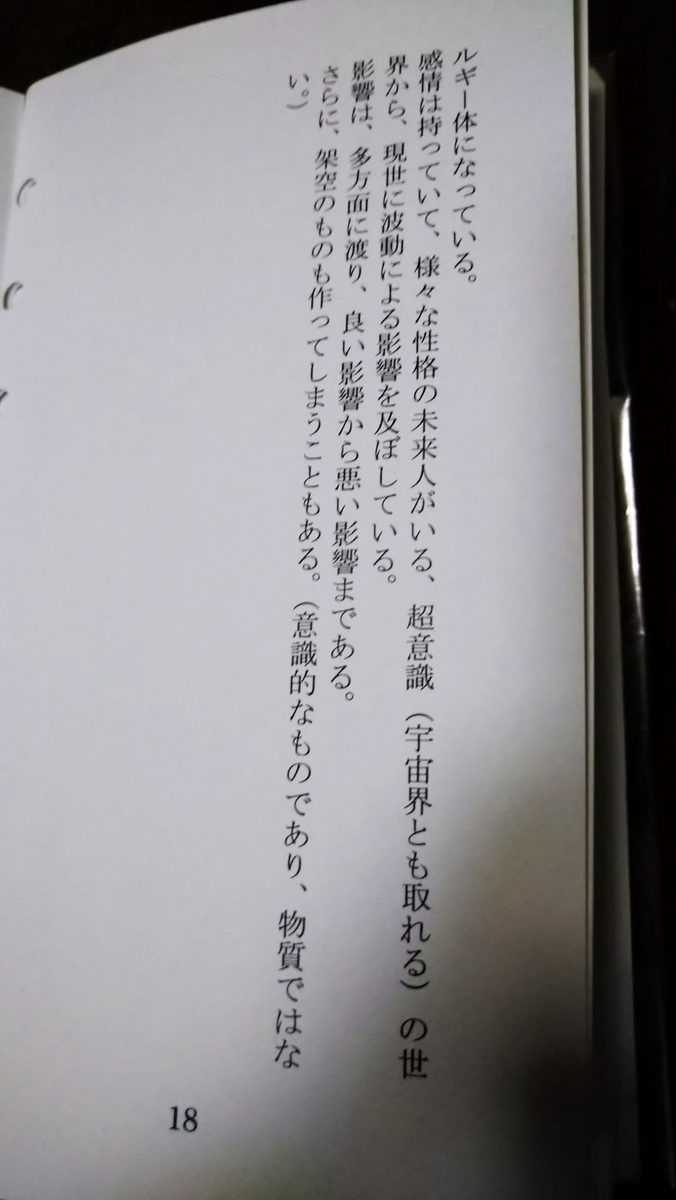 ルギー体になっている。
感情は持っていて、様々な性格の未来人がいる、超意識（宇宙界とも取れる）の世
界から、現世に波動による影響を及ぼしている。
影響は、多方面に渡り、良い影響から悪い影響まである。
さらに、架空のものも作ってしまうこともある。（意識的なものであり、物質ではな
い。）
18